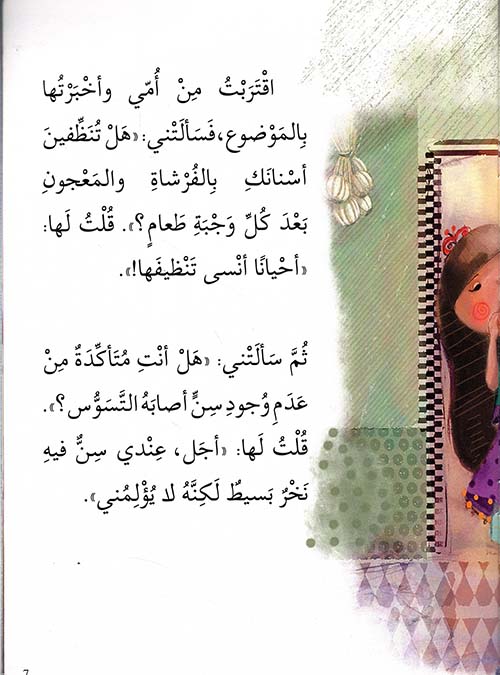 اقْتَرَبْتُ مِنْ أُمّي وأخْبَرْتُها
بِالمَوْضوعِ، فَسَأَلَتْني: «هَلْ تُنَظِّفينَ
أسْنانَكِ بِالفُرْشاةِ والمَعْجونِ
بَعْدَ كُلِّ وَجْبَةِ طَعامٍ؟». قُلْتُ لَها:
«أحْيانًا أنْسى تَنْظيفَها!».
ثُمَّ سَألَتْني: «هَلْ أنْتِ مُتَأكِّدَةٌ مِنْ
عَدَمِ وُجودِ سِنٍّ أصابَهُ التَّسَوُّس؟».
قُلْتُ لَها: «أجَل، عِنْدي سِنٌّ فيهِ
نَخْرٌ بَسيطٌ لَكِنَّهُ لا يُؤْلِمُني».
7